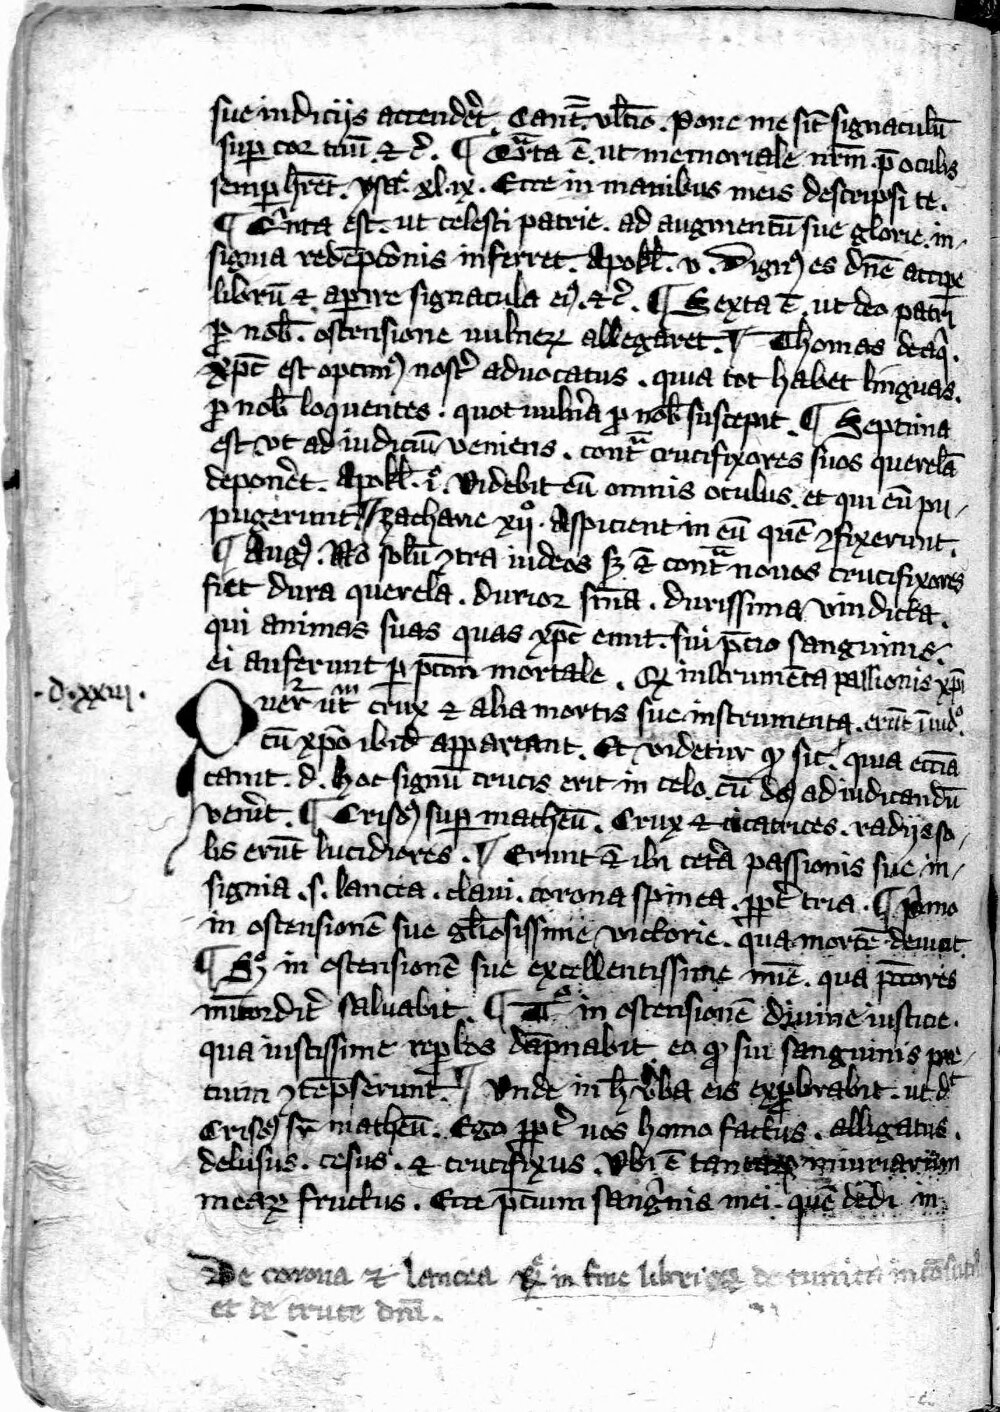 sue indiciis attend̉et. Cant̄. vltīo. Pone me sic̄ signaculū
sup̱ cor tuū. ⁊ c̉. ¶ Qͣrta ē. ut memoriale nr̄m p̄ oculis
semp̱ hr̄et. ysaͤ. xl.ix. Ecce in manibus meis descripsi te.
¶ Qͥnta est. ut celesti patrie. ad augmentū sue glorie. in-
signia redēptōnis inferret. Apok̄. v. Dignꝰ es dn̄e accipe
librū ⁊. aperire signacula eiꝰ. ⁊ c̉. ¶ Sexta ē. ut deo patri
ꝓ nob̄. ostensione vulneꝝ allegaret. ¶ Thomas de aq̄.
xp̄c est optimꝰ nost̉ advocatus. quia tot habet linguas.
ꝓ nob̄ loquentes. quot vuln̉a ꝓ nob̄ suscepit. ¶ Septima
est vt ad iudiciū veniens. contͣ crucifixores suos querelā
depon̉et. Apok̄. iͦ. Videbit eū omnis oculus. et qui eū pu-
pugerunt. // zacharie xijͦ. Aspicient in eū quē ꝯfixerunt.
¶ Augꝰ. Nō solū ꝯtra iudeos sꝫ ⁊ contͣ novos crucifixores
fiet dura querela. durior sn̄ia. durissima vindicta.
qui animas suas quas xp̄c emit. sui p̄cio sanguinis.
ei auferunt ꝑ pc̄cm mortale. Qꝫ instrumēta passionis xp̄i
Querͬ utͫ crux ⁊ alia mortis sue instrumenta. erūt ī iudͦ.
cū xp̄o ibid̄ appareant. Et videtur qꝫ sic. quia ecc̄ia
canit. d. hoc signū crucis erit in celo. cū dn̄s ad iudicandū
ven̉it. ¶ Crisꝰ sup̱ matheū. Crux ⁊ cicatrices. radijs so-
lis erūt lucidiores. ¶ Erunt ⁊ ibi cet̉a passionis sue in-
signia. s. lancea. clavi. corona spinea. ꝓpt̉ tria. ¶ Pͥmo
in ostensionē sue gl̄iosissime victorie. qua mortē devicit.
¶ Sͦ in ostensionē sue excellentissime mīe. qua pc̄cores
mīcordit̉ salvabit. ¶ Tͦ in ostensionē divine iusticie.
qua iustissime rep̱bos dāpnabit. eo qꝫ sui sanguinis pre-
cium ꝯtēpserunt. ¶ Vnde in h̄ v̉ba eis exp̱brabit. ut dͭ
Crisꝰ sr̄ matheū. Ego ꝓpt̉ vos homo factus. alligatus.
delusus. cesus. ⁊ crucifixus. Vbi ē iniuriarum
meaꝝ fructus. Ecce p̄cium sangͥnis mei. quē dedi in
De corona ⁊ lancea in fine libri de tunica
et de cruce dn̄i.
.d.xxiii.